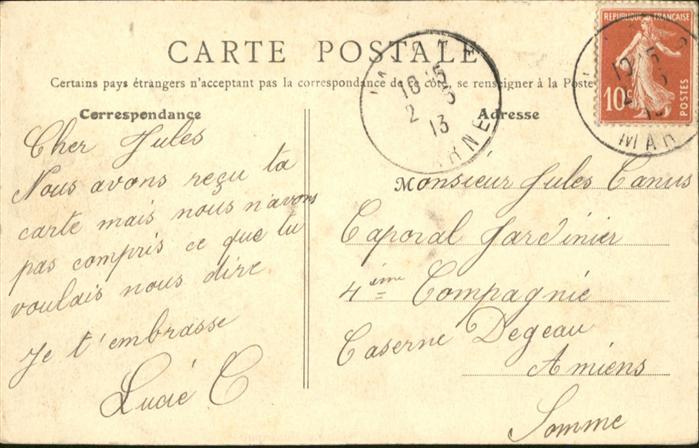 CARTE POSTALE
Certains pays étrangers n'acceptant pas la correspondance de ce côté, se renseigner à la Poste
Correspondance
Cher Jules
Nous avons reçu ta
carte mais nous n'avons
pas compris ce que tu
voulais nous dire
Je t'embrasse
Lucié C
Adresse
Monsieur Jules Canus
Caporal Jardinier
4ième Compagnie
Caserne Degeau
Amiens
Somme
REPUBLIQUE FRANÇAISE
10c
POSTES
10 15
2 5
13
RNE
10 15
2 5
13
MAR